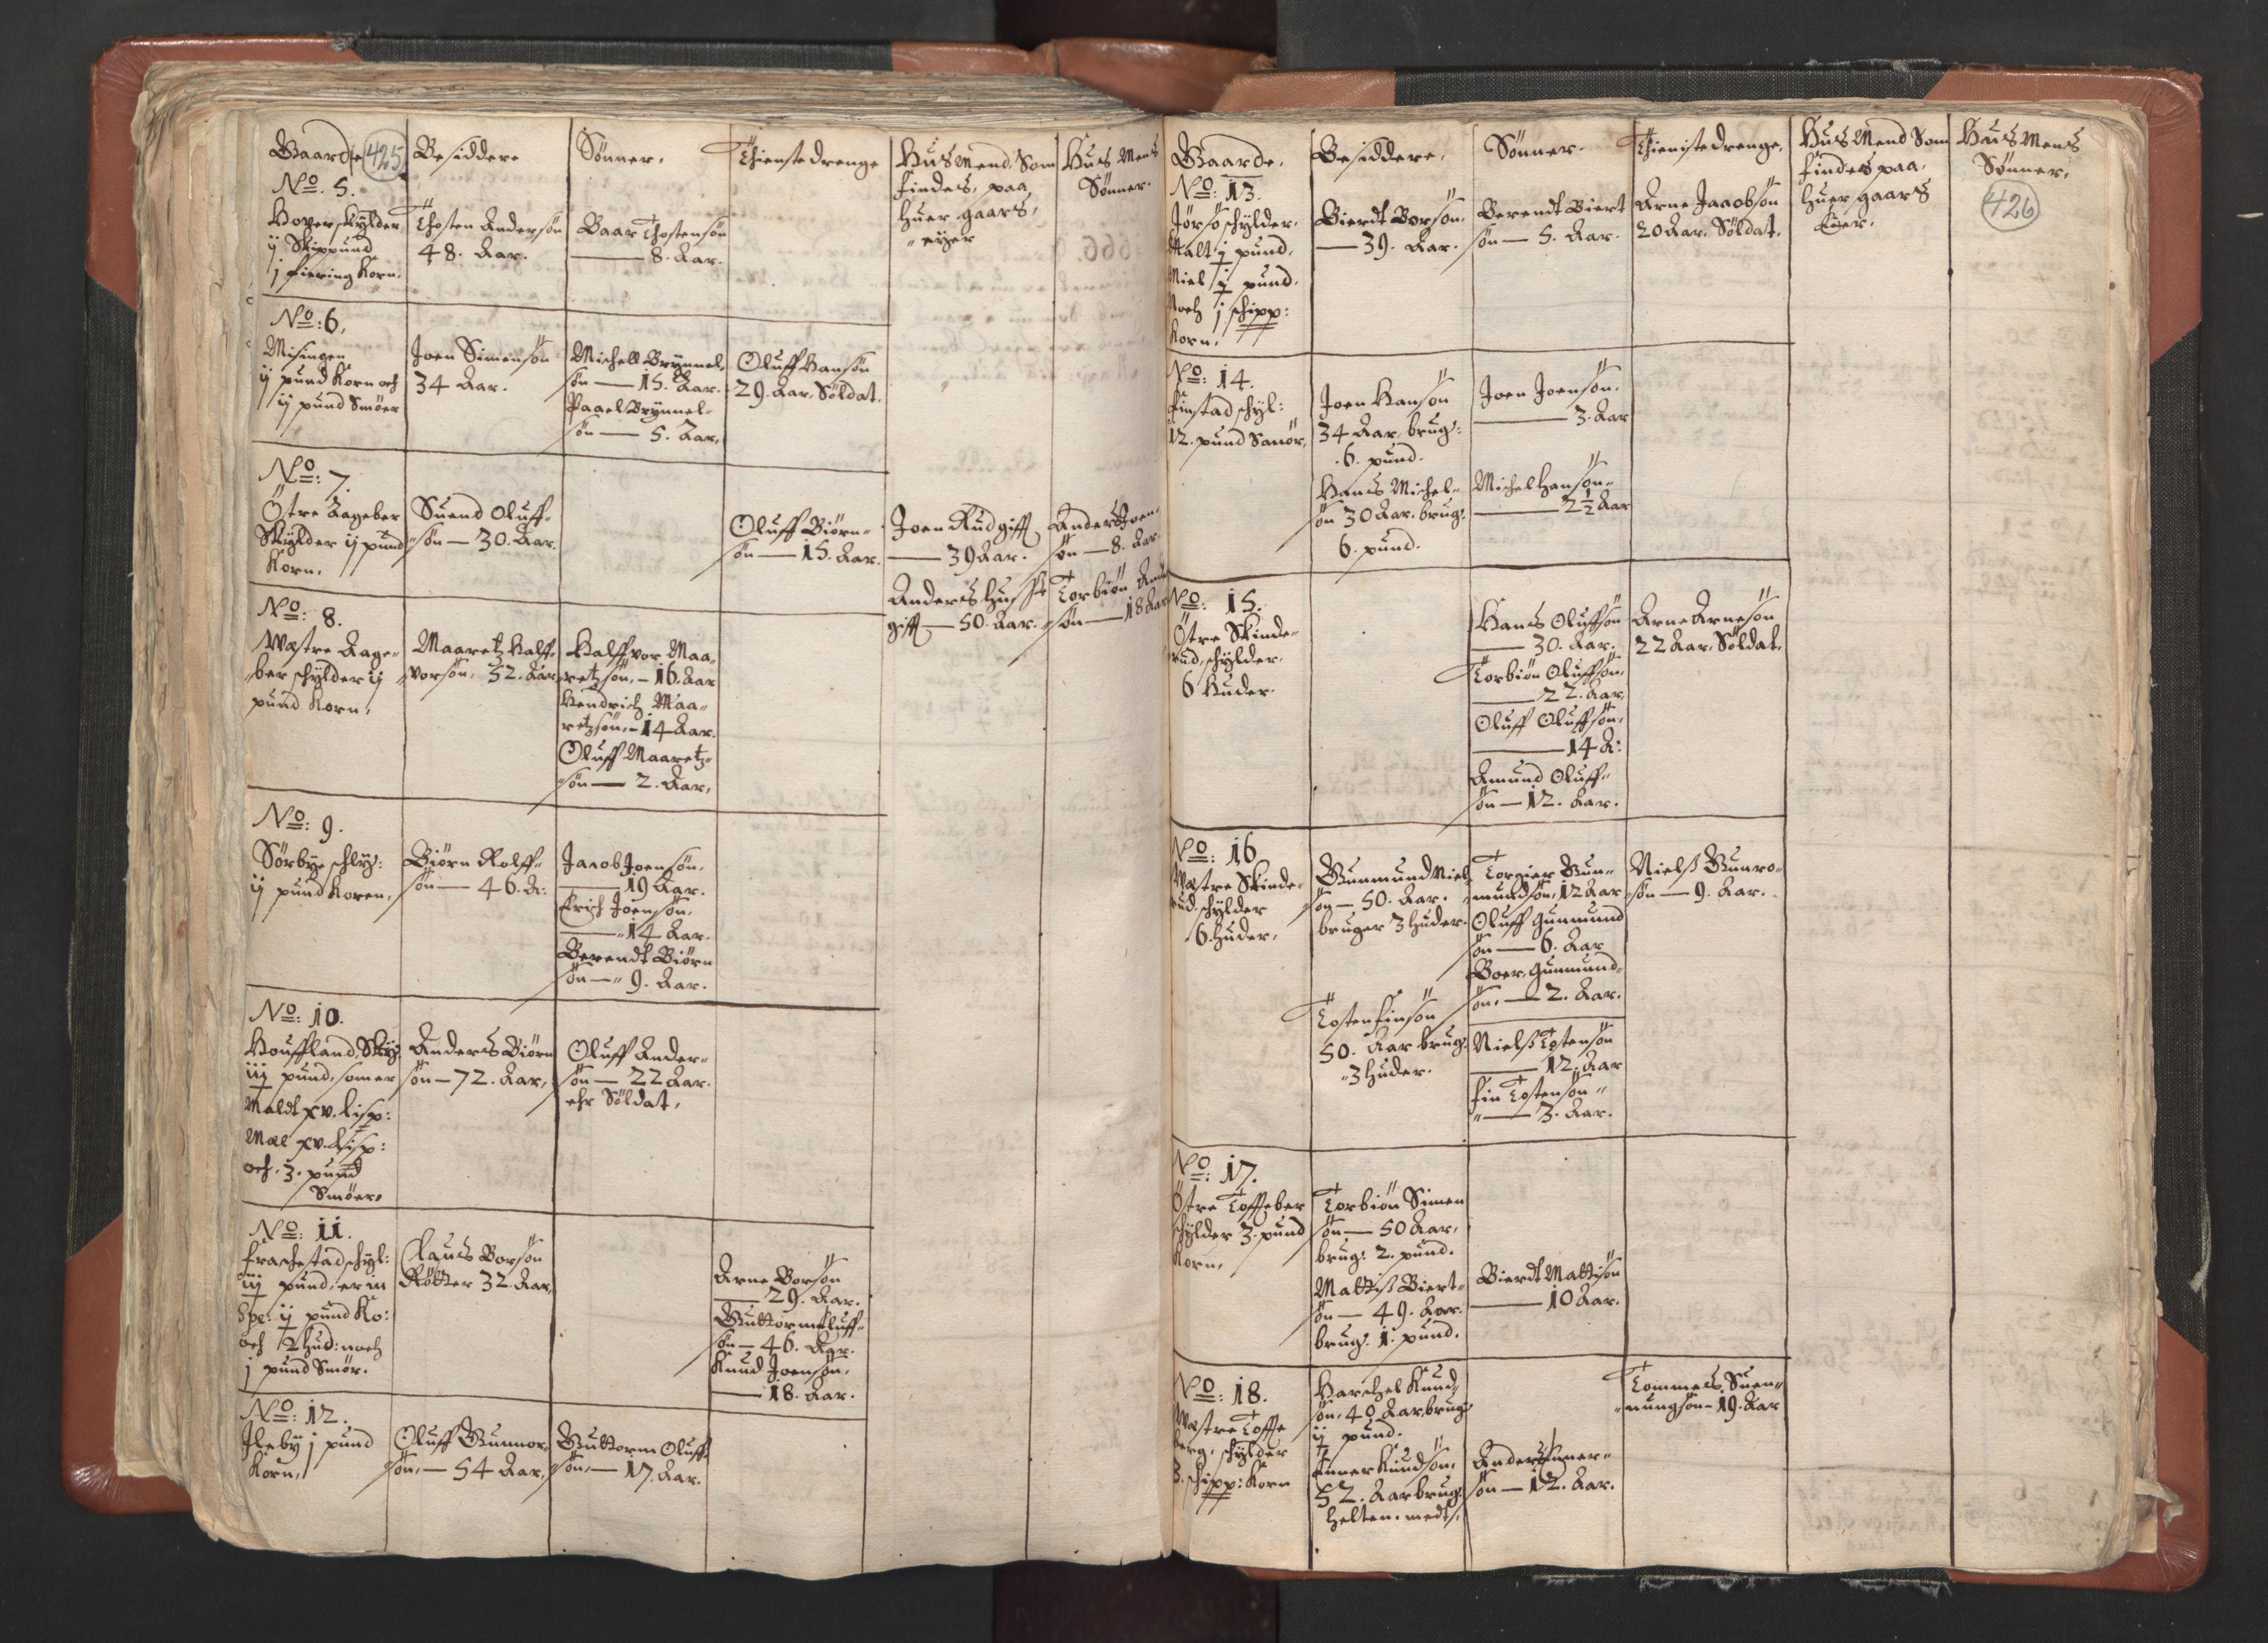 Gaarde
425
Besiddere
Sønner.
Thienstedrenge
Hus Mend, Som
findes, paa
huer gaars,
eyer
Huus Mens
Sønner.
No. 5.
Hoger skylder
ij Skippund
j fiering Korn.
Thosten Andersøn
48. Aar.
Baar Thostensøn
8. Aar.
No: 6.
Misingen
ij pund Korn och
ij pund Smøer
Joen Simensøn
34 Aar.
Michell Brynnel-
søn — 15. Aar.
Paael Brynnel-
søn — 5. Aar.
Oluff Hansøn
29. Aar, Soldat.
No: 7.
Østre Aageber
Skylder ij pund
Korn.
Suend Oluff-
søn — 30. Aar.
Oluff Biørn-
søn — 15. Aar.
Joen Rud gifft
— 39 Aar.
Anders Joen-
søn — 8. Aar.
Anders Huss
gifft — 50. Aar.
Torbiøn
søn — 18 Aar
No: 8.
Wæstre Aage-
ber schylder ij
pund Korn.
Maaretz Half-
vorsøn. 52. Aar
Halffvor Maa-
retzsøn. — 16. Aar
Hendrich Maa-
retzsøn. — 14 Aar.
Oluff Maaretz-
søn — 2. Aar.
No: 9.
Sørbye schly:
ij pund Koren.
Biørn Rolff-
søn — 46. A:
Jacob Joensøn.
— 19 Aar.
Erich Joensøn.
— 14 Aar.
Berendt Biørn
søn — 9. Aar.
No: 10.
Houffland, Sky:
iij pund, som er
Maldt xv. lisp:
Mæl xv. lisp:
och 3. pund
Smøer.
Anders Biørn
søn — 72. Aar.
Oluff Ander-
søn — 22 Aar.
ehr Soldat.
No: 11.
Fraschestad schyl:
iij pund, er in
Spe: ij pund Ko:
och 2 hud: noch
j pund Smør.
Clauds Borsøn
Røtter 32. Aar.
Arne Borsøn
— 29. Aar.
Guttorm Oluff-
søn — 46. Aar.
Knud Joensøn.
— 18. Aar.
No: 12.
Ileby j pund
Korn.
Oluff Gunnor-
søn. — 54 Aar.
Guttorm Oluff-
søn. — 17. Aar.
Gaarde.
Besiddere.
Sønner.
Thienistedrenge.
Huus Mend Som
findes paa,
huer gaars
Eier.
Huus Mens
Sønner.
426
No: 13.
Jørsø schylder.
Malt j pund.
Miel j pund.
Noch j schipp:
Korn.
Bierdt Borsøn.
— 39. Aar.
Berendt Biert
søn — 5. Aar.
Arne Jacobsøn
20 Aar. Soldat.
No: 14.
Finstad schyl:
12. pund Smør.
Joen Hansøn
34 Aar, brug:
6. pund.
Joen Joensøn.
— 3. Aar
Hans Michel-
søn 30 Aar. brug:
6. pund.
Michel Hansøn
— 2 1/2 Aar
No: 15.
Østre Skinde-
rud, schylder.
6 Huder.
Hans Oluffsøn
— 30. Aar.
Torbiøn Oluffsøn.
— 22. Aar.
Oluff Oluffsøn.
— 14 A:
Amund Oluff-
søn — 12. Aar.
Arne Arnesøn
22 Aar. Soldat.
No: 16
Wæstre Skinde-
rud. schylder
6. huder.
Gunmund Niel-
søn — 50. Aar.
bruger 3 huder.
Torgier Gun-
mundsøn. 12 Aar
Oluff Gunmund
søn — 6. Aar
Boer Gunmund-
søn. — 2. Aar.
Nielss Gunro-
søn — 9. Aar.
Tosten Finsøn
50. Aar brug:
3 huder.
Nielss Tostensøn
— 12. Aar
Fin Tostensøn
— 3. Aar.
No: 17.
Østre Toffteber
schylder 3. pund
Korn.
Torbiøn Simen
søn — 50 Aar.
brug: 2. pund.
Mattiss Biert-
søn — 49. Aar.
brug: 1. pund.
Bierdt Mattisøn
— 10 Aar.
No: 18.
Wæstre Toffte
berg. schylder
3. schipp: Korn
Harchel Knud-
søn. 40 Aar, brug:
ij pund.
Enner Knudsøn.
52. Aar brug:
helten. medt.
Anders Enner-
søn — 12. Aar.
Tommes Suen-
nungsøn — 19. Aar